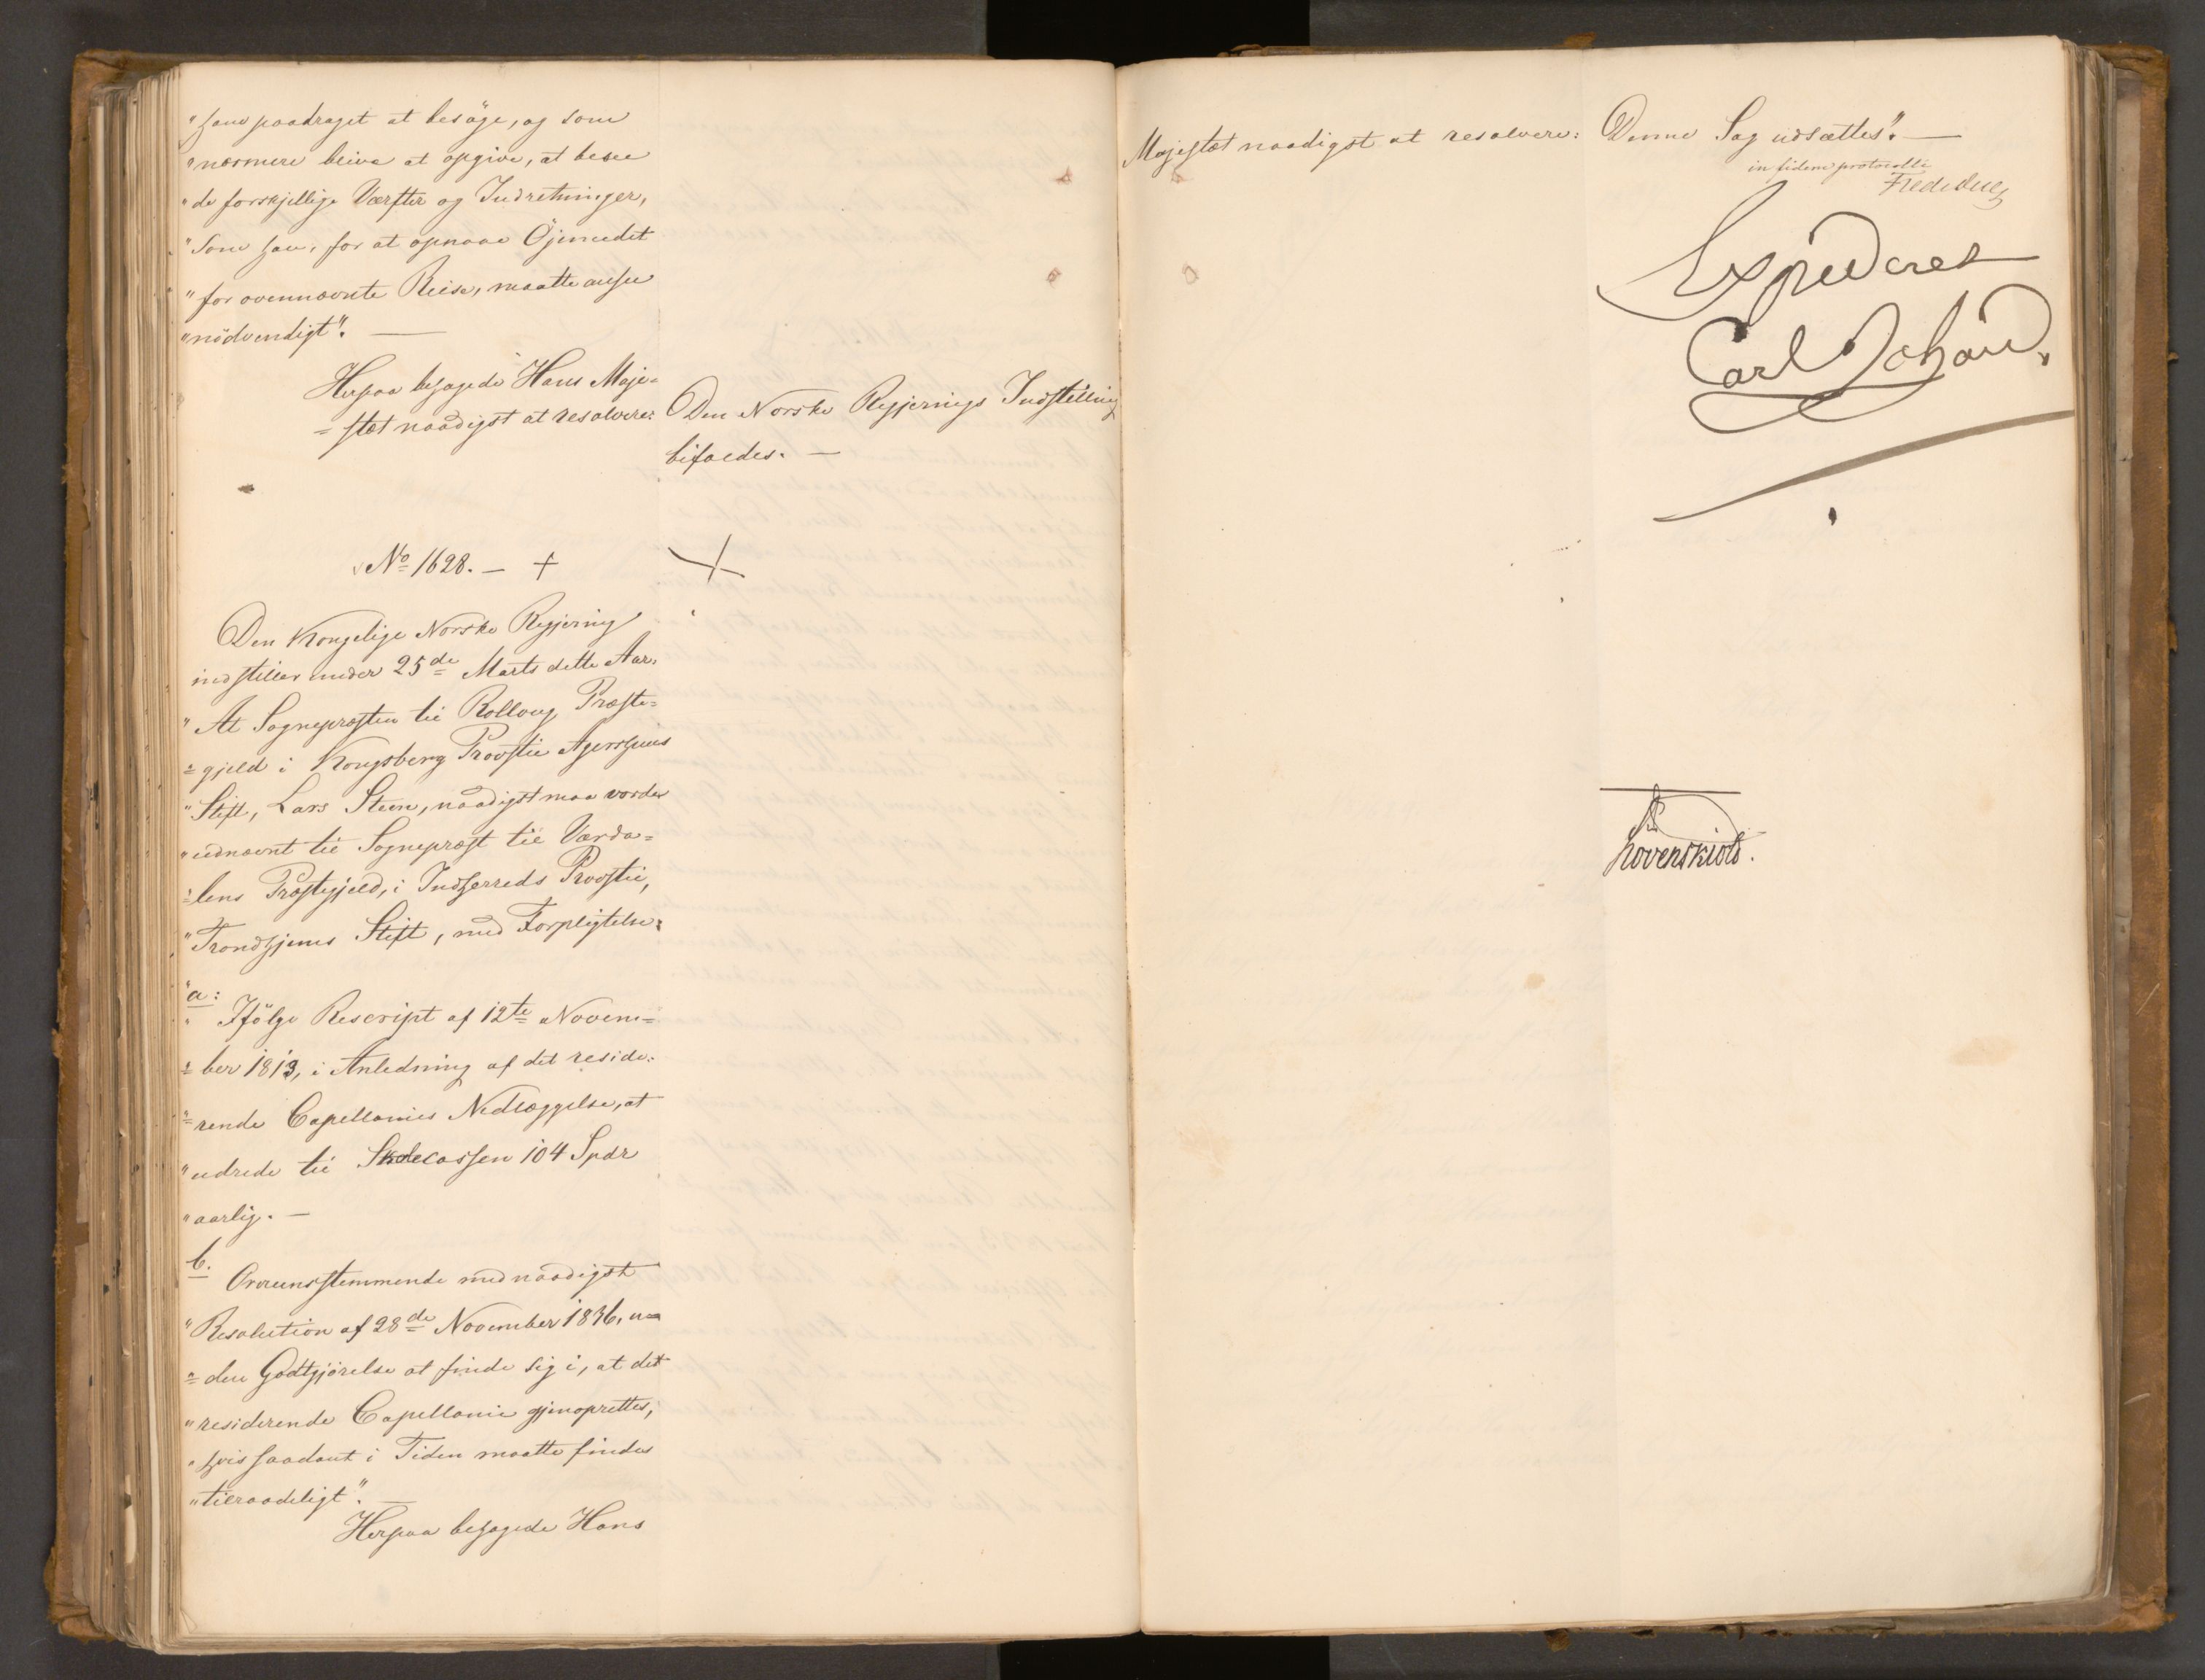 "ham paadraget at besöge, og som
"nærmere blive at opgive, at besee
"de forskjellige Værfter og Indretninger,
"som han, for at opnaae Øjemedet
"for ovennævnte Reise, maatte ansee
"nödvendigt". —
Herpaa behagede Hans Maje=
=stæt naadigst at resolvere: Den Norske Regjerings Indstilling
bifaldes. —
No 1628. — +
Den Kongelige Norske Regjering
indstiller under 25de Marts dette Aar:
"At Sognepræsten til Rollaug Præste=
"=gjeld i Kongsberg Provstie Agershuus
"Stift, Lars Steen, naadigst maa vorde
"udnævnt til Sognepræst til Værda=
"=lens Præstegjeld, i Indherreds Provstie,
"Trondhjems Stift, med Forpligtelse:
"a:
"Ifölge Rescript af 12te Novem=
"=ber 1813, i Anledning af det reside=
"=rende Capellanies Nedlæggelse, at
"udrede til Skolecassen 104 Spdr
"aarlig. —
b.
Overeensstemmende med naadigst
"Resolution af 28de November 1836, u=
"=den Godtgjörelse at finde sig i, at det
"residerende Capellanie gjenoprettes,
"hvis saadant i Tiden maatte findes
"tilraadeligt". —
Herpaa behagede Hans
Majestæt naadigst at resolvere: Denne Sag udsættes". —
in fidem protocolli
Fredr Due
Expederes
Carl Johan.
Lövenskiold.